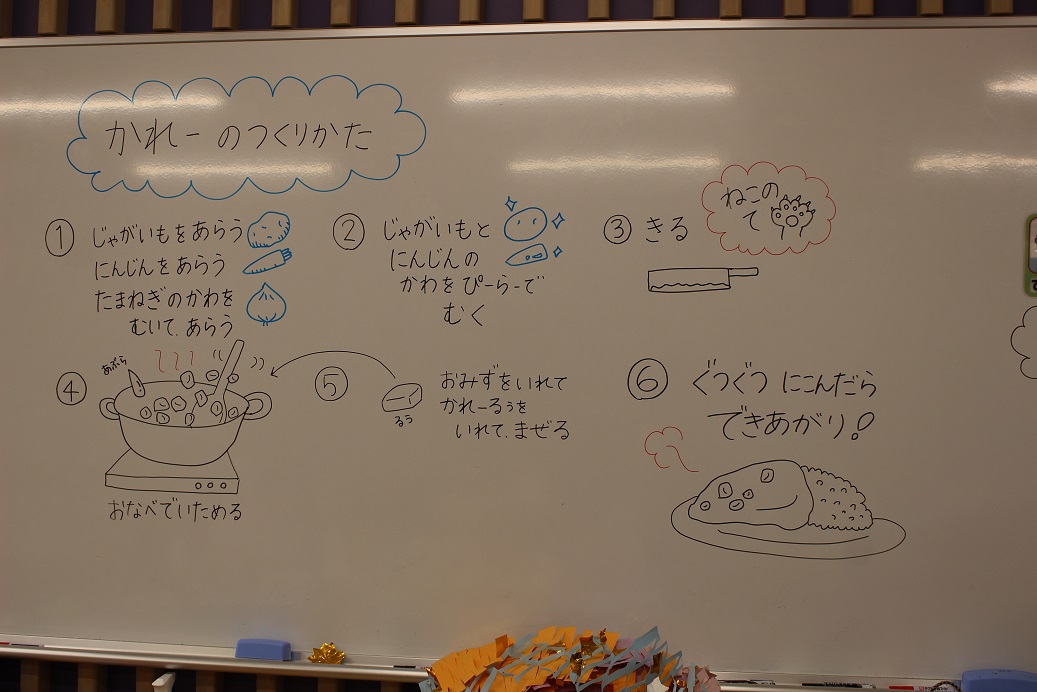 かれーのつくりかた
① じゃがいもをあらう
にんじんをあらう
たまねぎのかわを
むいて、あらう
② じゃがいもと
にんじんの
かわをぴーらーで
むく
③ きる
ねこの
て
④
あぶら
おなべでいためる
⑤
るう
おみずをいれて
かれーるぅを
いれて、まぜる
⑥ ぐつぐつ にこんだら
できあがり!